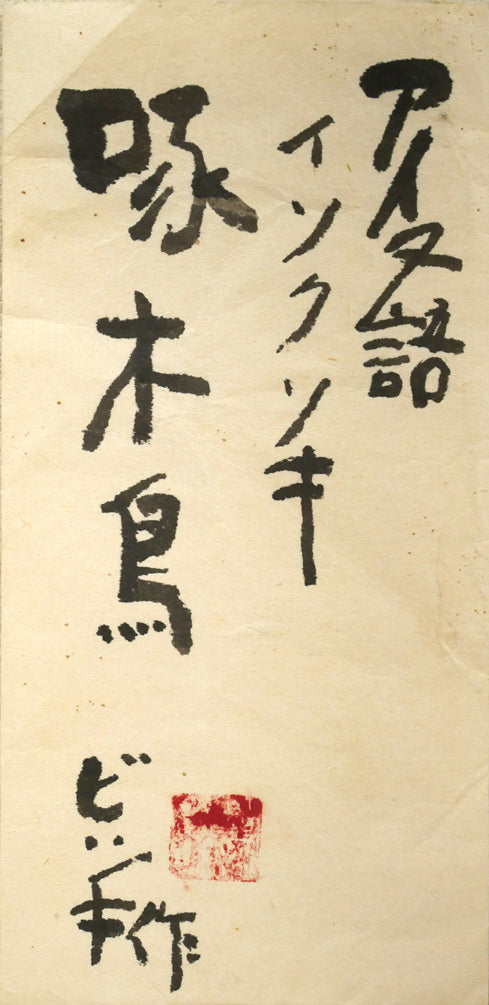 アイヌ語
イソクソキ
啄木鳥
ビッキ作